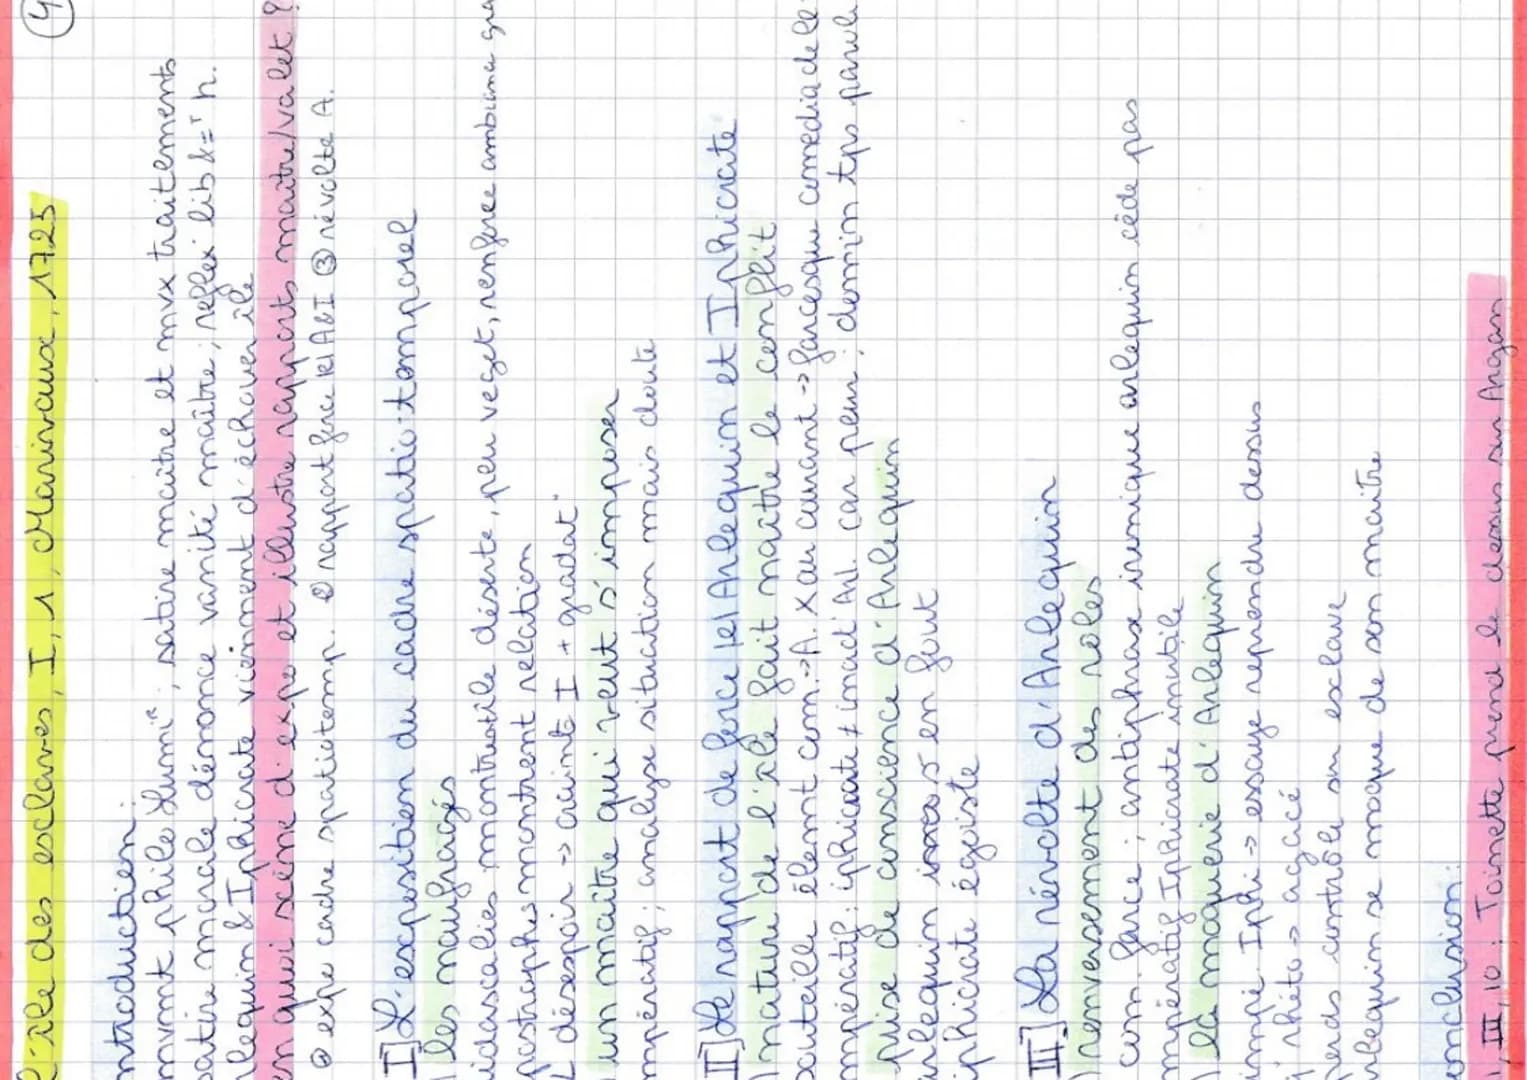 ④
l'île des esclaves, I, 1, Marivaux, 1725
ntroduction
mvmt philo Lumi^re; satire maître et mvx traitements
satire morale dénonce vanité maître, réflex lib & =^r h.
rlequin & Iphicrate viennent d'échouer île
en quoi scène d'expo et illustre rapports maître/valet ?
① expo cadre spatiotemp. ② rapport force | e | A & I ③ révolte A.
I] L'exposition du cadre spatio-temporel
) les naufragés
idascalies montre île déserte, peu veget, renforce ambiance gra
postrophes montrent relation
↳ désespoir → crainte I + gradat°
) un maître qui veut s'imposer
mpératif; analyse situation mais doute
II] Le rapport de force | e | Arlequin et Iphicrate
) nature de l'île fait naître le conflit
bouteille élemt com. → A. X au courant → farcesque comedia dell
mpératif: iphicrate ≠ inact° Arl. car peur; dernin tps paroli
prise de conscience d'Arlequin
arlequin s'en fout
iphicrate égoïste
III] La révolte d'Arlequin
) renversement des rôles
com. farce; antiphrase ironique arlequin cède pas
mpératif Iphicrate inutile
la moquerie d'Arlequin
impé. Iphi → essaye reprendre dessus
rhéto → agacé
perds contrôle son esclave
rlequin se moque de son maître
onclusion:
, III, 10: Toinette prend le dessus sur Argan